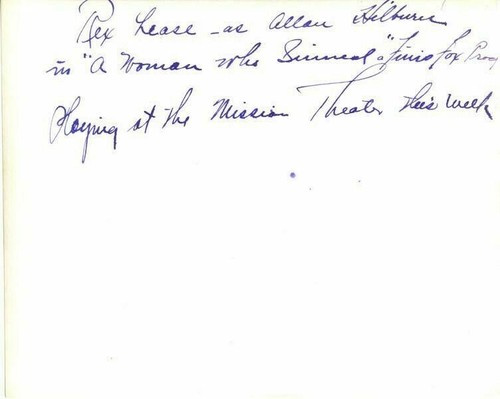 Rex Lease - as Allan Hilburn
in "A Woman who Sinned" a Finis Fox Prod
Playing at the Mission Theater this week